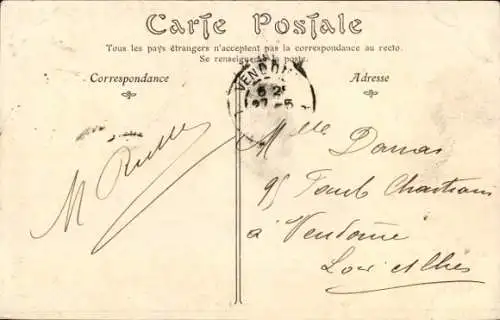 Carte Postale
Tous les pays étrangers n'acceptent pas la correspondance au recto.
Se renseigner à la poste.
Correspondance
Adresse
VENDOM
6 25
27 -5
M
Mlle Darras
95
à Vendôme
Loir et Cher